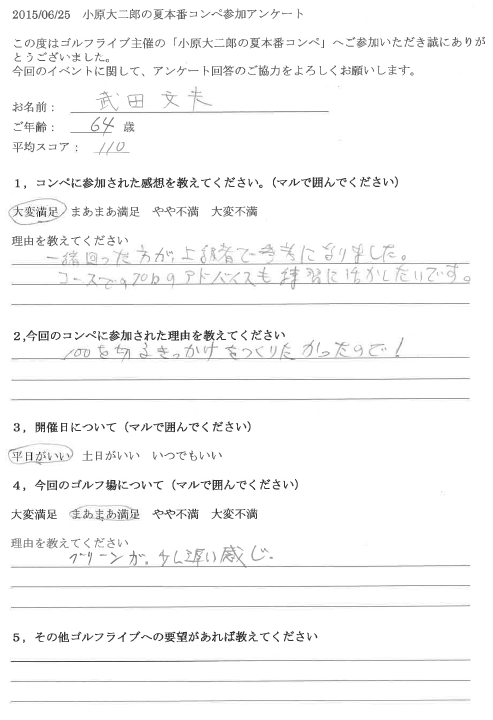 2015/06/25　小原大二郎の夏本番コンペ参加アンケート
この度はゴルフライブ主催の「小原大二郎の夏本番コンペ」へご参加いただき誠にありが
とうございました。
今回のイベントに関して、アンケート回答のご協力をよろしくお願いします。
お名前： 武田 文夫
ご年齢： 64 歳
平均スコア： 110
1，コンペに参加された感想を教えてください。（マルで囲んでください）
大変満足　まあまあ満足　やや不満　大変不満
理由を教えてください
一緒回った方が、上級者で参考になりました。
コースでのプロのアドバイスも練習に活かしたいです。
2,今回のコンペに参加された理由を教えてください
100を切るきっかけをつくりたかったので！
3，開催日について（マルで囲んでください）
平日がいい　土日がいい　いつでもいい
4，今回のゴルフ場について（マルで囲んでください）
大変満足　まあまあ満足　やや不満　大変不満
理由を教えてください
グリーンが、少し遅い感じ。
5，その他ゴルフライブへの要望があれば教えてください